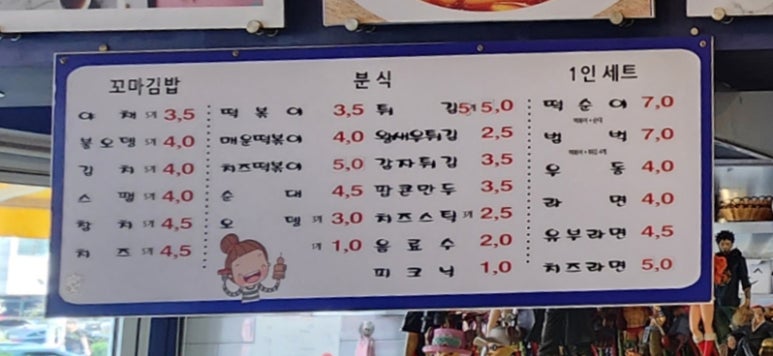 꼬마김밥
야채 5개 3,5
불오뎅 5개 4,0
김치 5개 4,0
스팸 5개 4,0
참치 5개 4,5
치즈 5개 4,5
분식
떡볶이 3,5
매운떡볶이 4,0
치즈떡볶이 5,0
순대 4,5
오뎅 3개 3,0
1개 1,0
튀김 5개 5,0
왕새우튀김 2,5
감자튀김 3,5
팝콘만두 3,5
치즈스틱 3개 2,5
음료수 2,0
피크닉 1,0
1인세트
떡순이 7,0
떡볶이+순대
범벅 7,0
우동 4,0
라면 4,0
유부라면 4,5
치즈라면 5,0